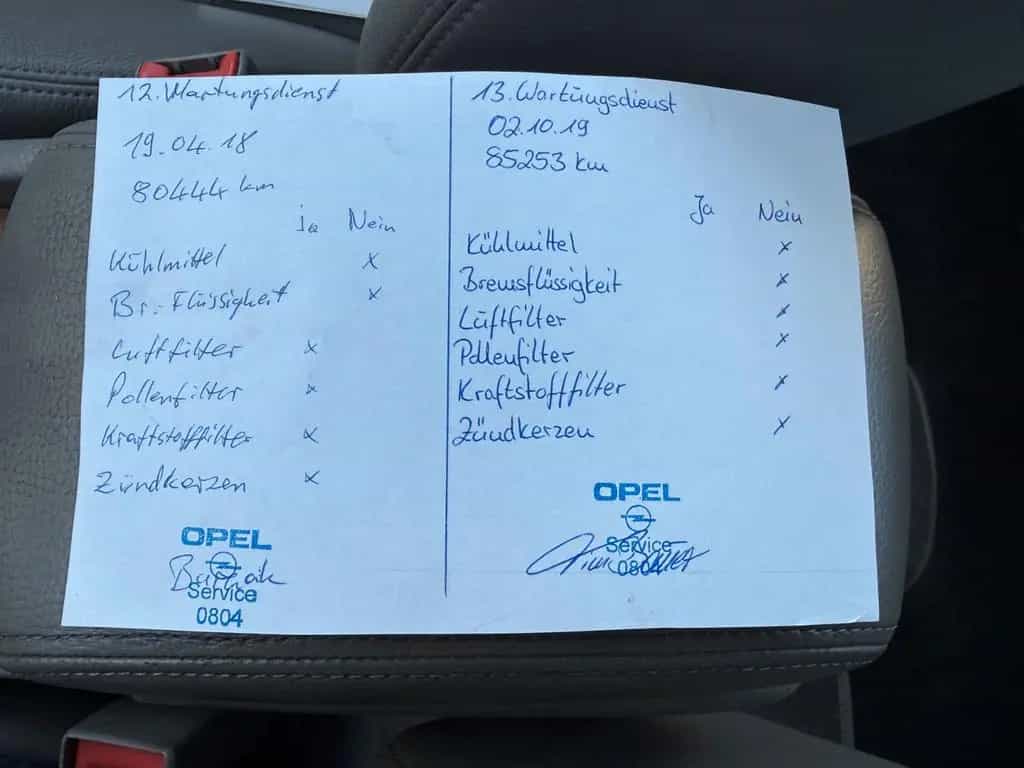 12. Wartungsdienst
19.04.18
80444 km
ja Nein
Kühlmittel x
Br.-Flüssigkeit x
Luftfilter x
Pollenfilter x
Kraftstofffilter x
Zündkerzen x
OPEL
Service
0804
13. Wartungsdienst
02.10.19
85253 km
Ja Nein
Kühlmittel x
Bremsflüssigkeit x
Luftfilter x
Pollenfilter x
Kraftstofffilter x
Zündkerzen x
OPEL
Service
0804